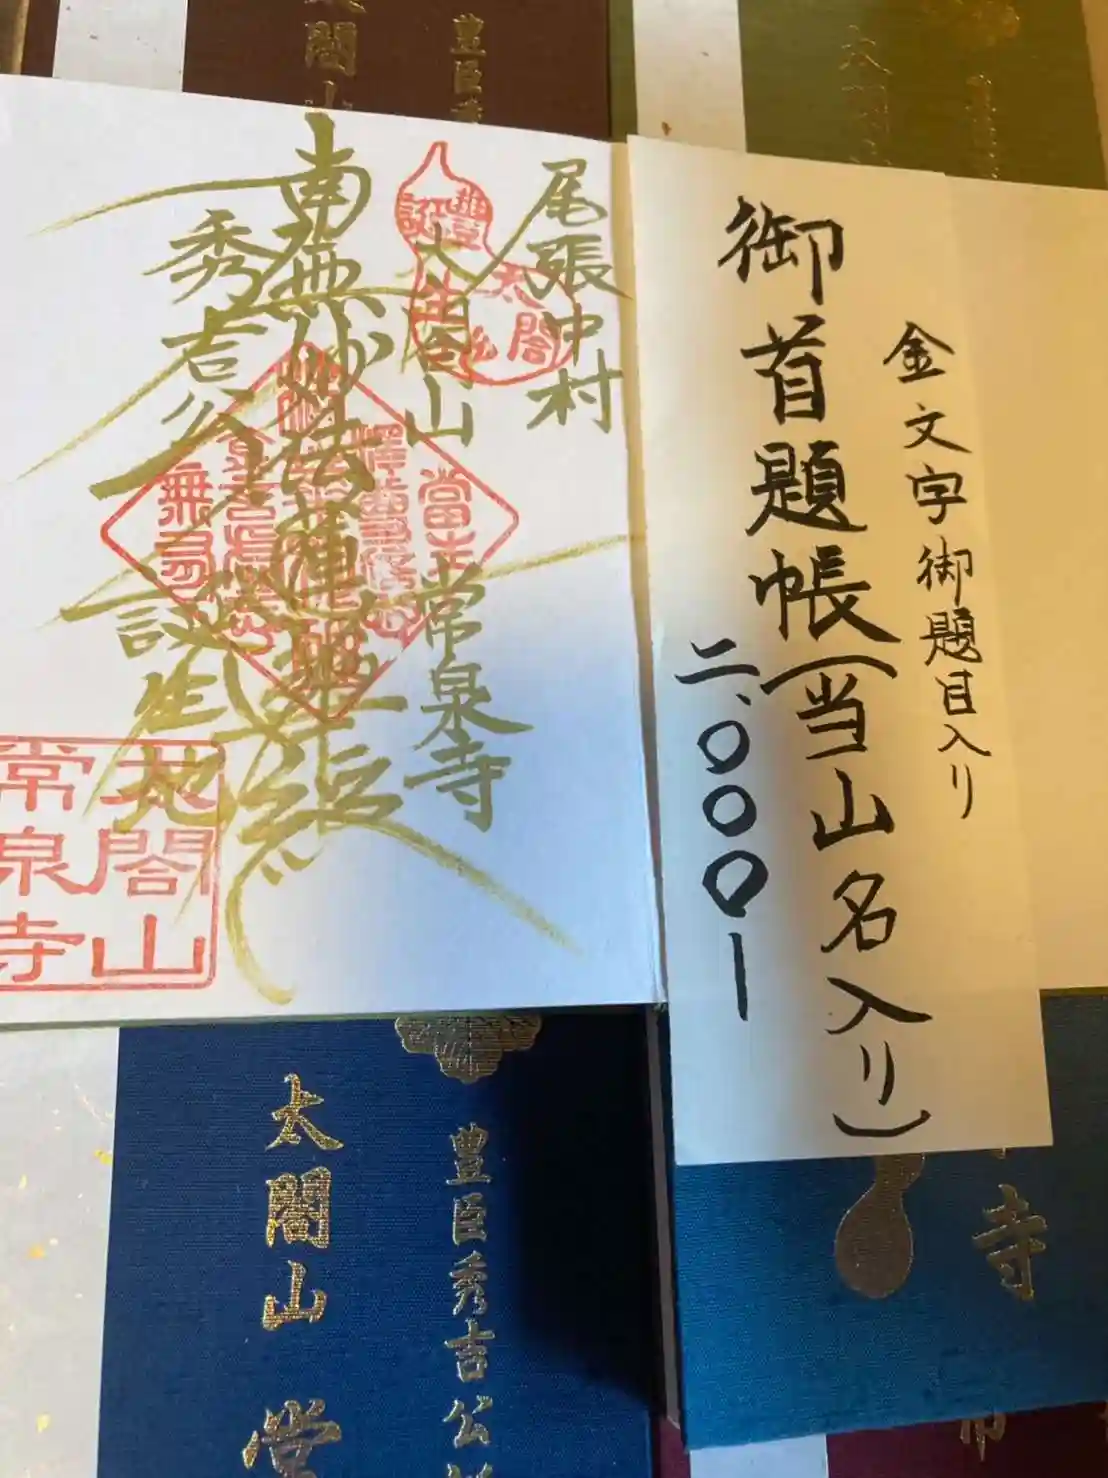 金文字御題目入り
御首題帳（当山名入り）
二、〇〇〇ー
尾張中村
太閤山
常泉寺
南無妙法蓮華経
秀吉公
誕生地
豊
誕生
太閤
當
無
太閤山
常泉寺
豊臣秀吉公
太閤山
常
寺
閤山
豊臣
太閤